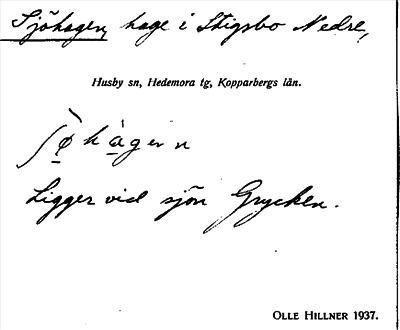 Sjöhagen, hage i Stigsbo Nedre,
Husby sn, Hedemora tg, Kopparbergs län.
ʃø̀hàgen
Ligger vid sjön Grycken.
OLLE HILLNER 1937.